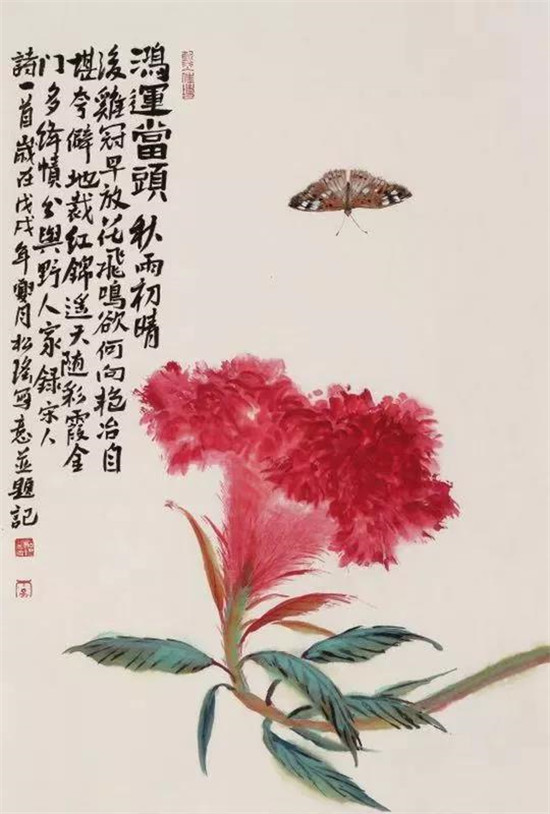 鴻運當頭 秋雨初晴
後雞冠早放花飛鳴欲何向艳冶自
堪夸僻地裁红錦遥天随彩霞金
门多絳幘分與野人家録宋人
詩一首歲在戊戌年月松瑤写意並題記